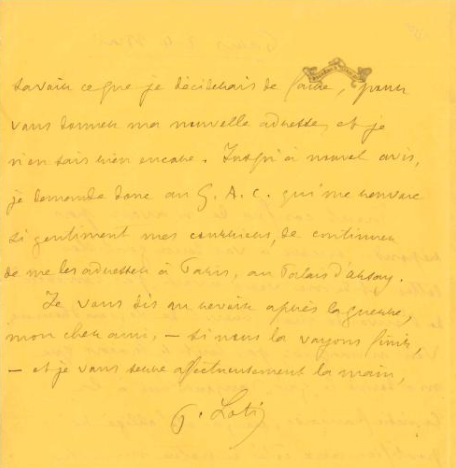 savoir ce que je déciderais de faire, pour
vous donner ma nouvelle adresse, et je
n'en sais rien encore. Jusqu'à nouvel avis,
je demande donc au G. A. C. qui me renvoie
si gentiment mes courriers, de continuer
de me les adresser à Paris, au Palais d'Orsay.
Je vous dis au revoir après la guerre,
mon cher ami, – si nous la voyons finir,
– et je vous serre affectueusement la main,
P. Loti